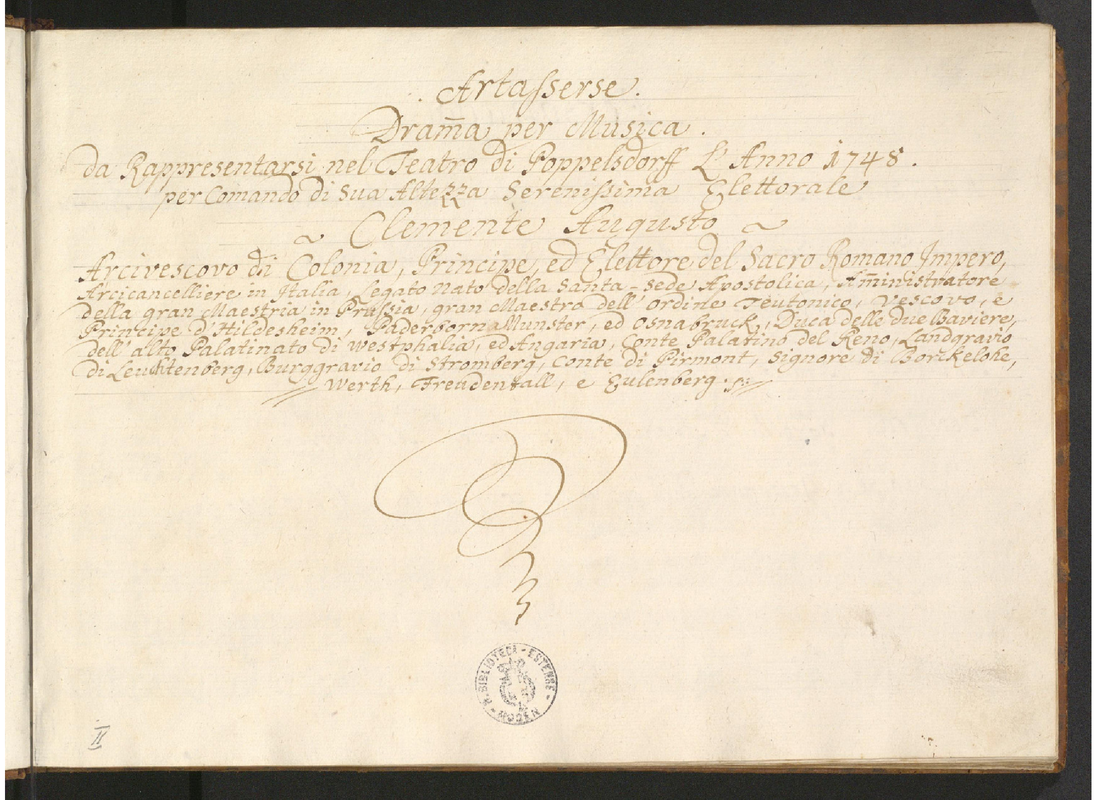 Artasserse.
Dram̃a per Musica.
da Rappresentarsi nel Teatro di Poppelsdorff L'Anno 1748.
per Comando di Sua Altezza Serenissima Elettorale
Clemente Augusto
Arcivescovo di Colonia, Principe, ed Elettore del Sacro Romano Impero,
Arcicancelliere in Italia, Legato Nato della Santa-Sede Apostolica, Am̃inistratore
della gran Maestria in Prussia, gran Maestro dell'ordine Teutonico, Vescovo, e
Principe d'Hildesheim, Paderborna Munster, ed Osnabruck, Duca delle due Baviere,
dell'alto Palatinato di Westphalia, ed Angaria, Conte Palatino del Reno, Landgravio
di Leuchtenberg, Burggravio di Stromberg, Conte di Pirmont, Signore di Borkelohe,
Werth, Freudentall, e Eulenberg.
R. BIBLIOTECA - ESTENSE - MODENA
II